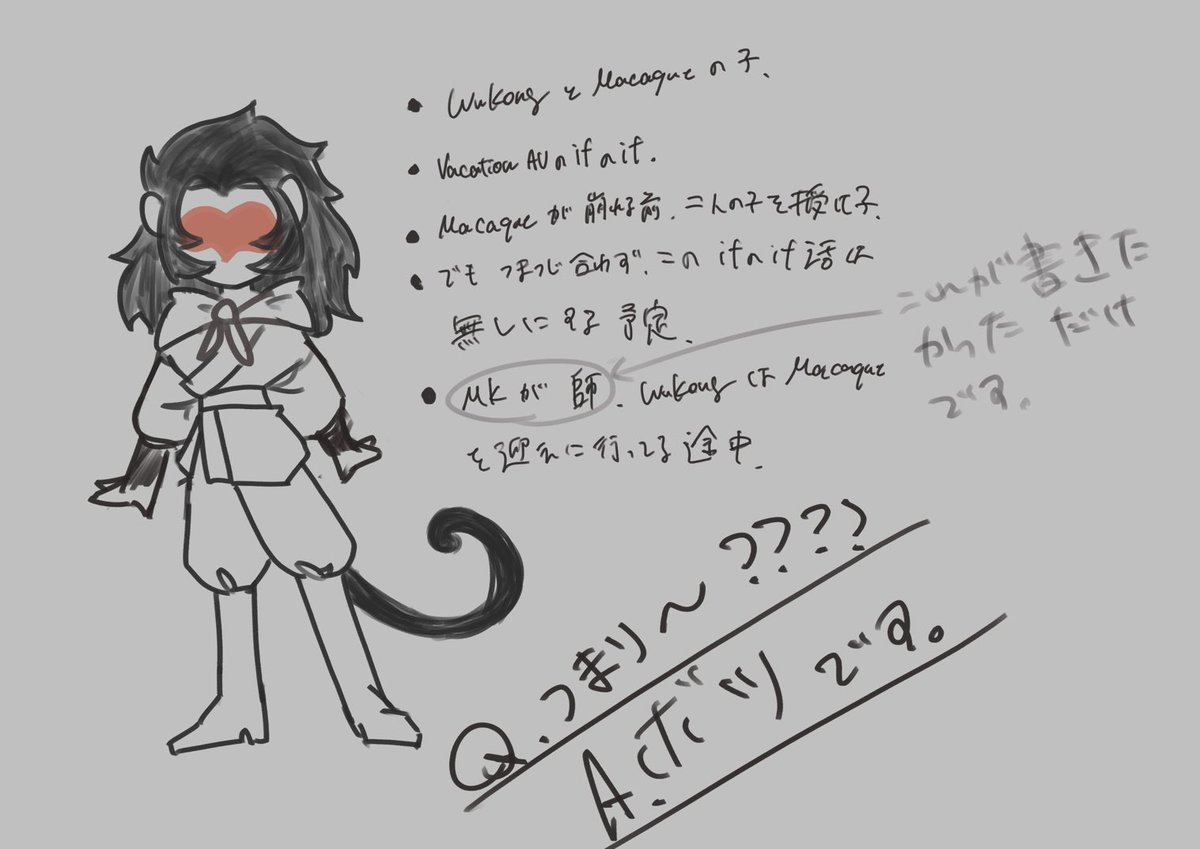 • Wukong と Macaque の子、
• Vacation AU の if の if.
• Macaque が 崩れる前、二人の子を授けた子.
• でも つまづじ合わず、この if の if 話は
無しにする 予定.
• MK が 師、Wukong は Macaque
を迎えに行ってる途中.
これが書きた
かった だけ
です。
Q. つまり〜????
A. ボツです。